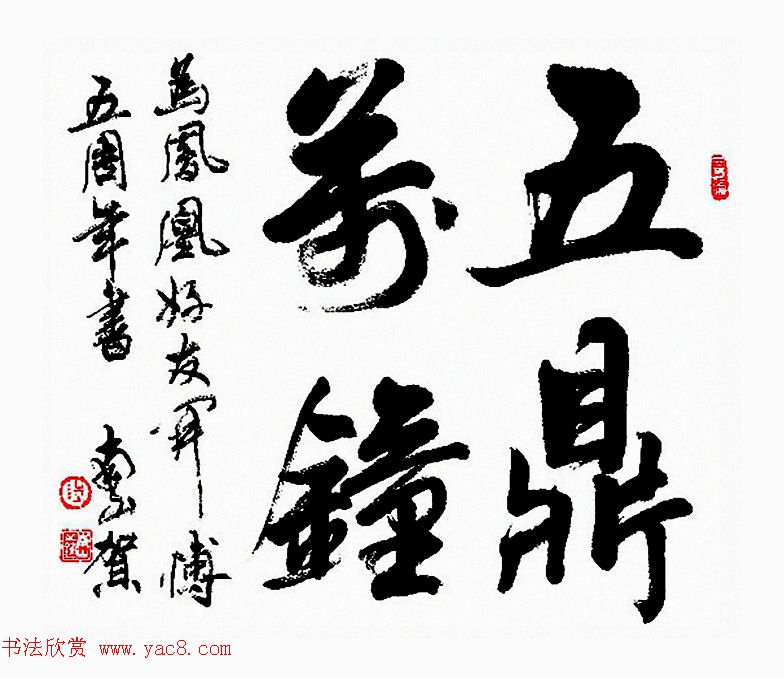 五鼎
萬鐘
為鳳凰好友開博
五周年書 南山賀
书法欣赏 www.yac8.com